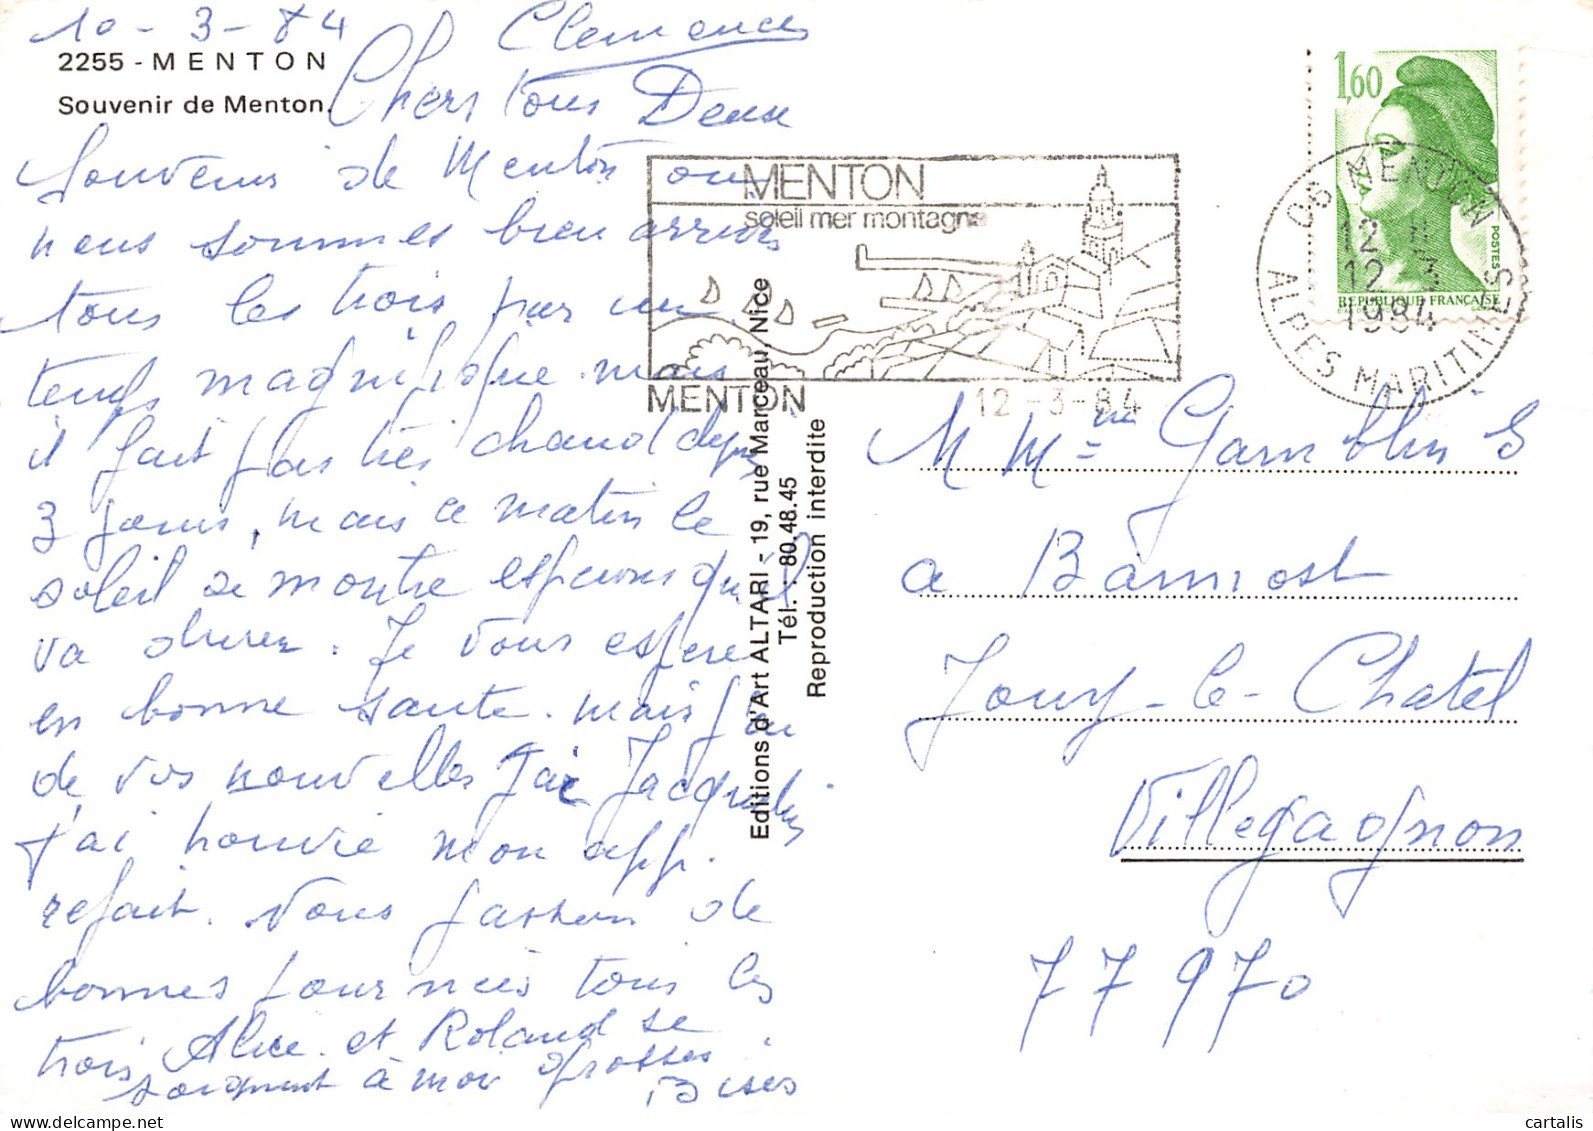 10-3-84
Clemence
2255 - MENTON
Souvenir de Menton.
Chers tous Deux
Souvenir de Menton ou
nous sommes bien arrivés
tous les trois par un
temps magnifique. mais
il fait pas très chaud depuis
3 jours, mais ce matin le
soleil se montre esperons qu'il
va durer. Je vous espere
en bonne sante. mais j'ai
de vos nouvelles Jacqueline
j'ai trouvé mon app.
refait. Nous passons de
bonnes journées tous les
trois Alice et Roland se
soignent à moi Grosses
Bises
Editions d'Art ALTARI - 19, rue Marceau, Nice
Tél. : 80.48.45
Reproduction interdite
MENTON
soleil mer montagne
MENTON
12-3-84
1,60
POSTES
REPUBLIQUE FRANÇAISE
06 MENTON
12 H
12-3
1984
ALPES MARITIMES
M Mme Gamblin S
a Bannost
Jouy-le-Chatel
Villegagnon
77970
cartalis